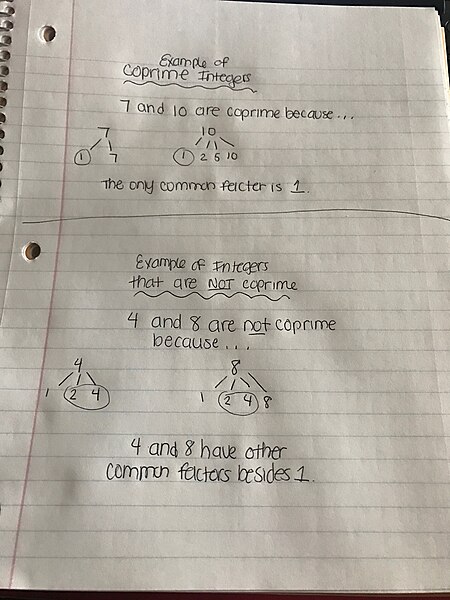 Example of
Coprime Integers
7 and 10 are coprime because...
7 10
1 7 1 2 5 10
The only common facter is 1.
Example of Integers
that are NOT coprime
4 and 8 are not coprime
because...
4 8
1 2 4 1 2 4 8
4 and 8 have other
common factors besides 1.